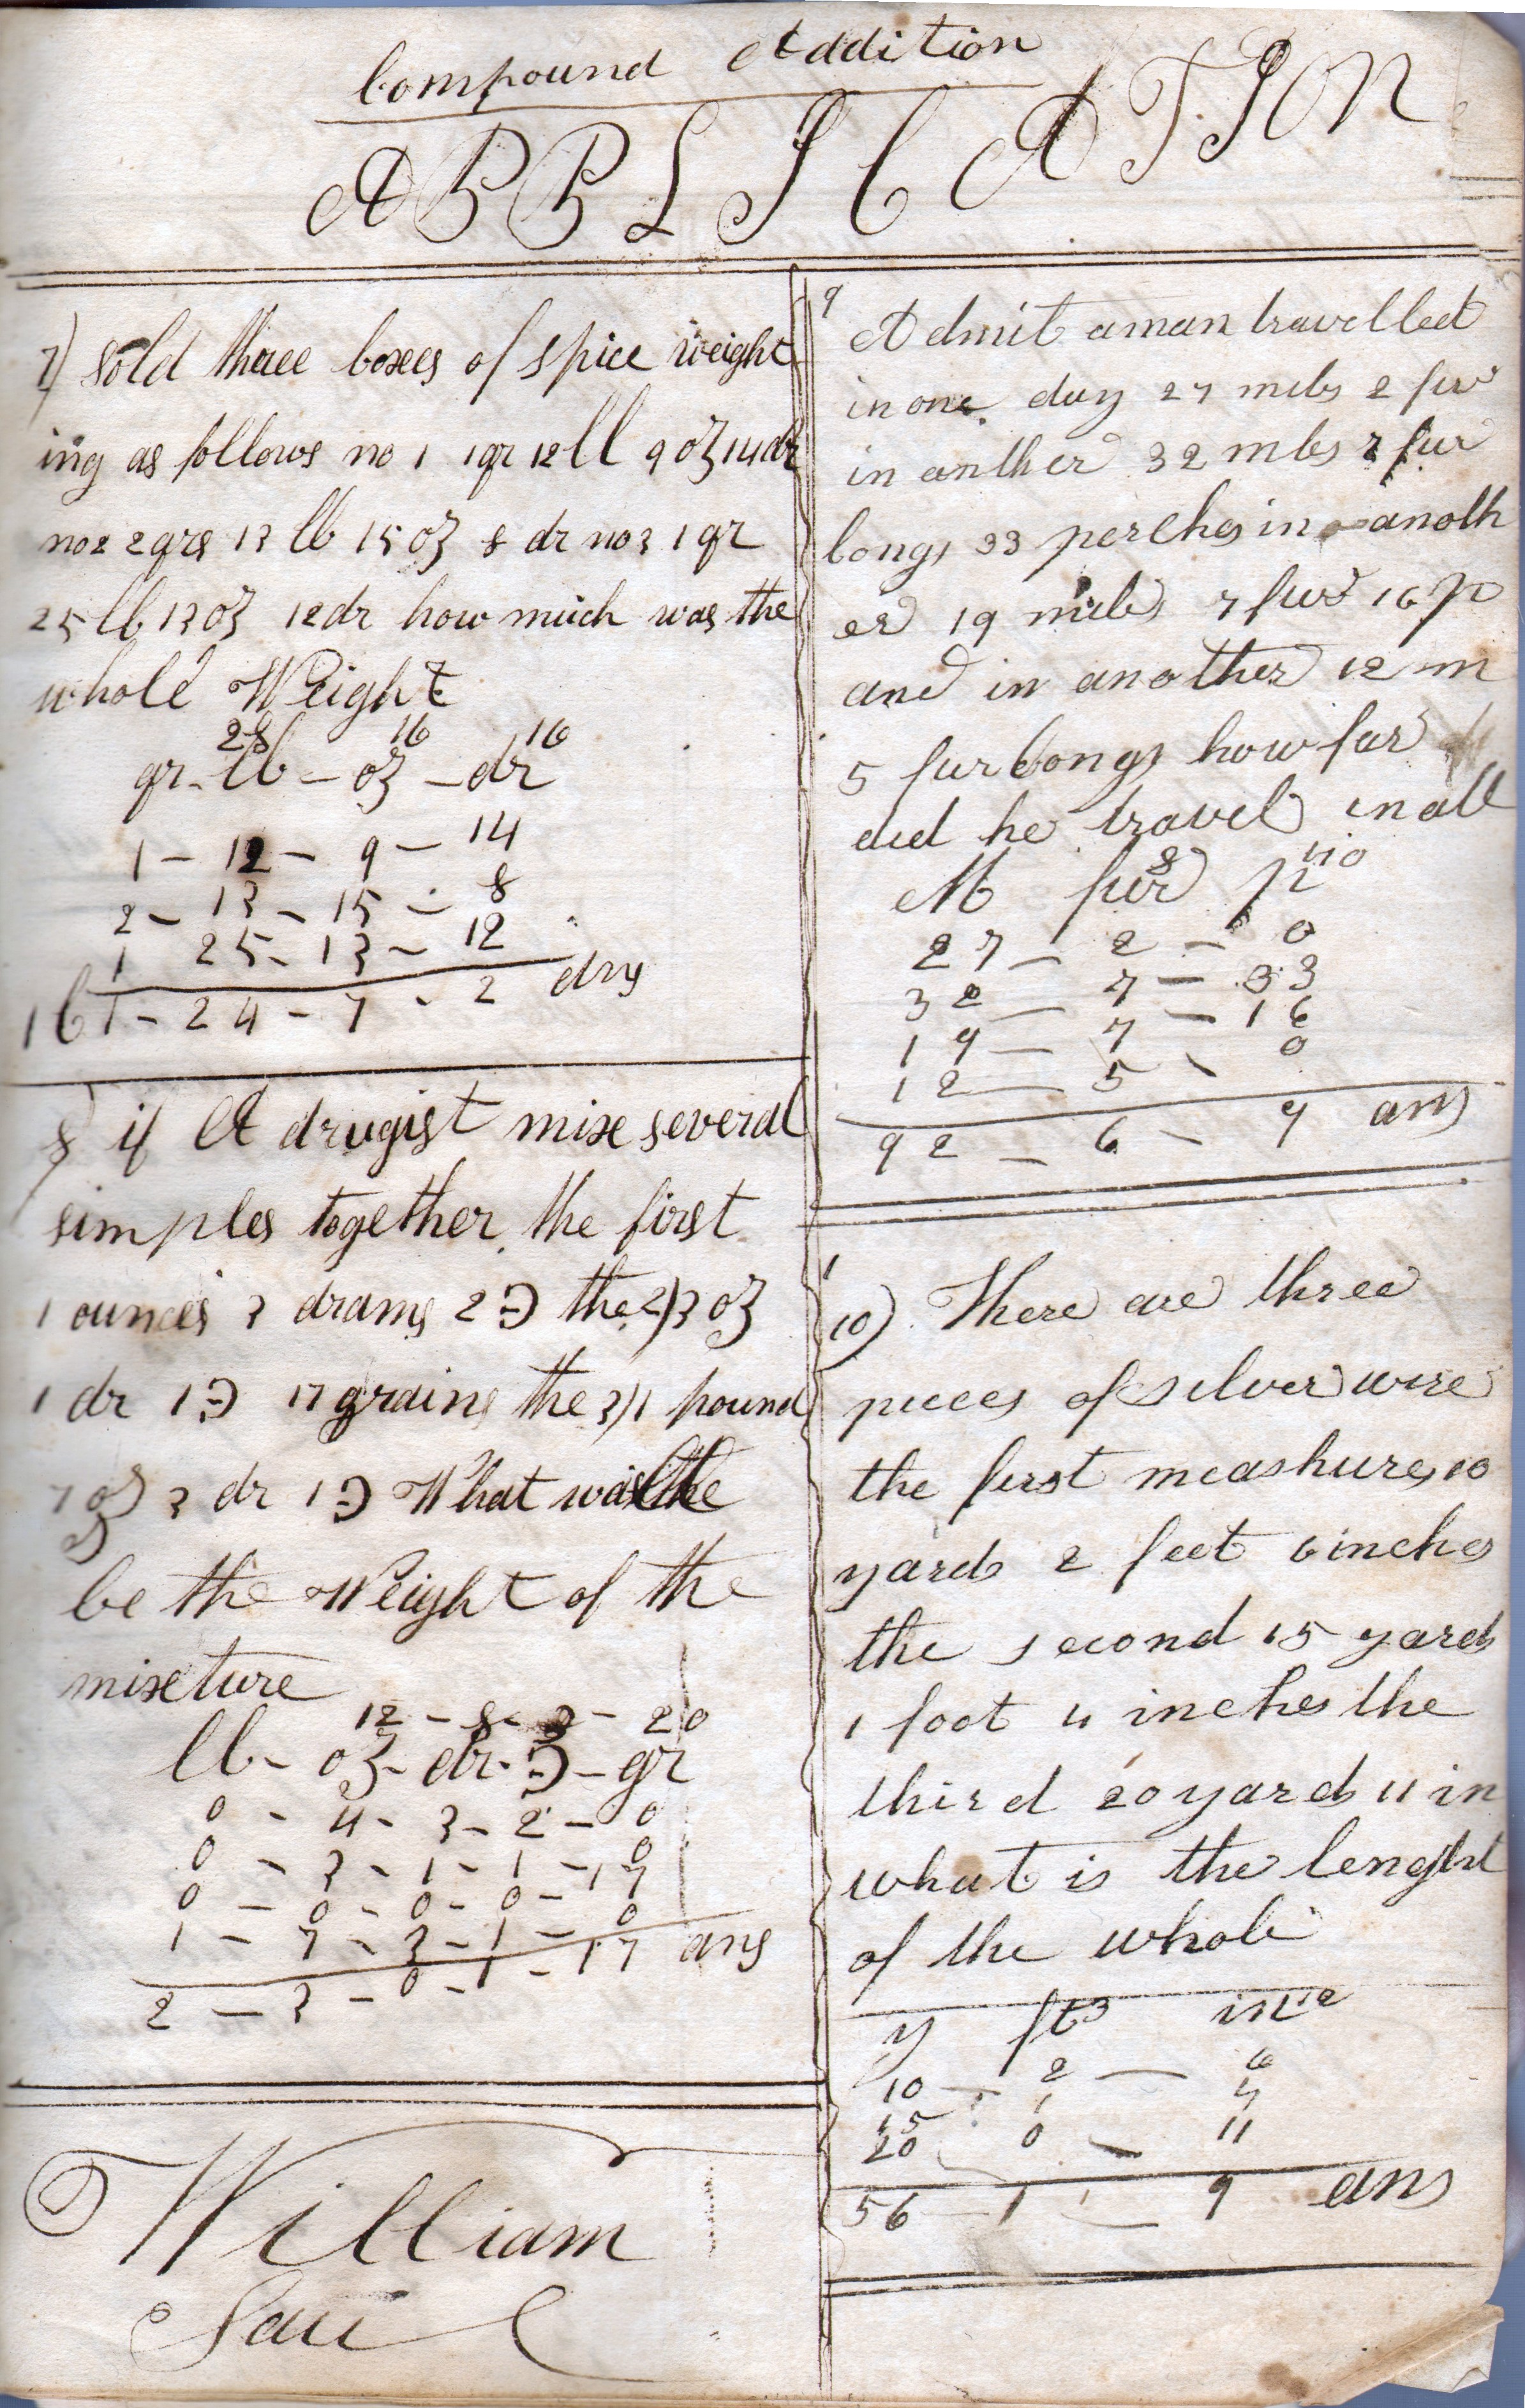 Compound Addition
APPLICATION
7) Sold three boxes of spice weight
ing as follows no 1 1qr 12 ll 9 oz 14 dr
no 2 2 qrs 13 lb 15 oz 8 dr no 3 1 qr
25 lb 13 oz 12 dr how much was the
whole Weight
28 16 16
qr - lb - oz - dr
1 - 12 - 9 - 14
2 - 13 - 15 - 8
1 25 - 13 - 12
1 C 1 - 24 - 7 - 2 drs
8) if A drugist mixe several
simples together the first
1 ounces 3 drams 2 ℈ the 2) 3 oz
1 dr 1 ℈ 17 grains the 3) 1 pound
7 oz 3 dr 1 ℈ What
be the Weight of the
mixeture
12 - 8 - 3 - 20
lb - oz - dr - ℈ - gr
0 - 4 - 3 - 2 - 0
0 - 3 - 1 - 1 - 17
0 - 0 - 0 - 0 - 0
1 - 7 - 3 - 1 - 0
2 - 3 - 0 - 1 - 17 ans
William
9 Admit a man travelled
in one day 27 miles 2 fur
in anther 32 miles 7 fur
longs 33 perches in anoth
er 19 miles 7 fur 16 p
and in another 12 m
5 furlongs how far
did he travel in all
M fur 8 p 40
27 - 2 - 0
32 - 7 - 33
19 - 7 - 16
12 - 5 - 0
92 - 6 - 9 ans
10) There are three
pieces of silver wire
the first meashures 10
yards 2 feet 6 inches
the second 15 yards
1 foot 4 inches the
third 20 yards 11 in
what is the lenght
of the whole
y ft 3 in 12
10 - 2 - 6
15 1 4
20 0 - 11
56 - 1 - 9 ans